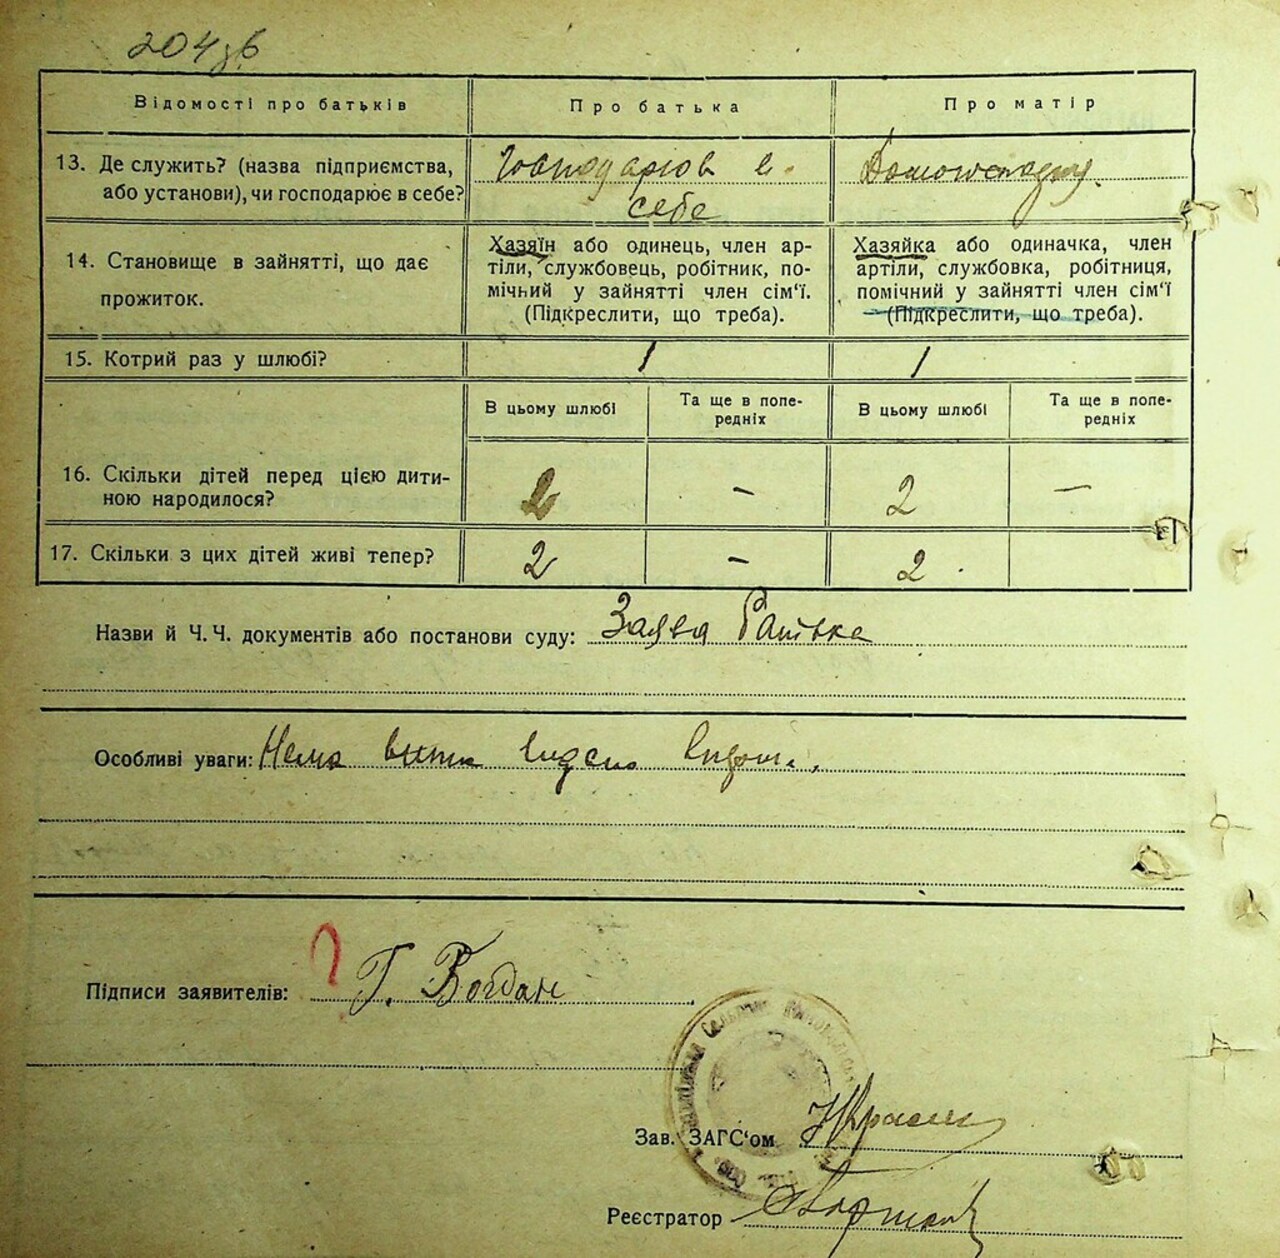 204зв
Відомості про батьків
Про батька
Про матір
13. Де служить? (назва підприємства,
або установи), чи господарює в себе?
Господарює в
себе
14. Становище в зайнятті, що дає
прожиток.
Хазяїн або одинець, член ар-
тіли, службовець, робітник, по-
мічний у зайнятті член сім‘ї.
(Підкреслити, що треба).
Хазяйка або одиначка, член
артіли, службовка, робітниця,
помічний у зайнятті член сім‘ї
(Підкреслити, що треба).
15. Котрий раз у шлюбі?
1
1
В цьому шлюбі
Та ще в попе-
редніх
В цьому шлюбі
Та ще в попе-
редніх
16. Скільки дітей перед цією дити-
ною народилося?
2
–
2
–
17. Скільки з цих дітей живі тепер?
2
–
2
Назви й Ч. Ч. документів або постанови суду: Заява Батька
Особливі уваги: Нема
Підписи заявителів: Г. Богдан
Зав. ЗАГС‘ом
Реєстратор